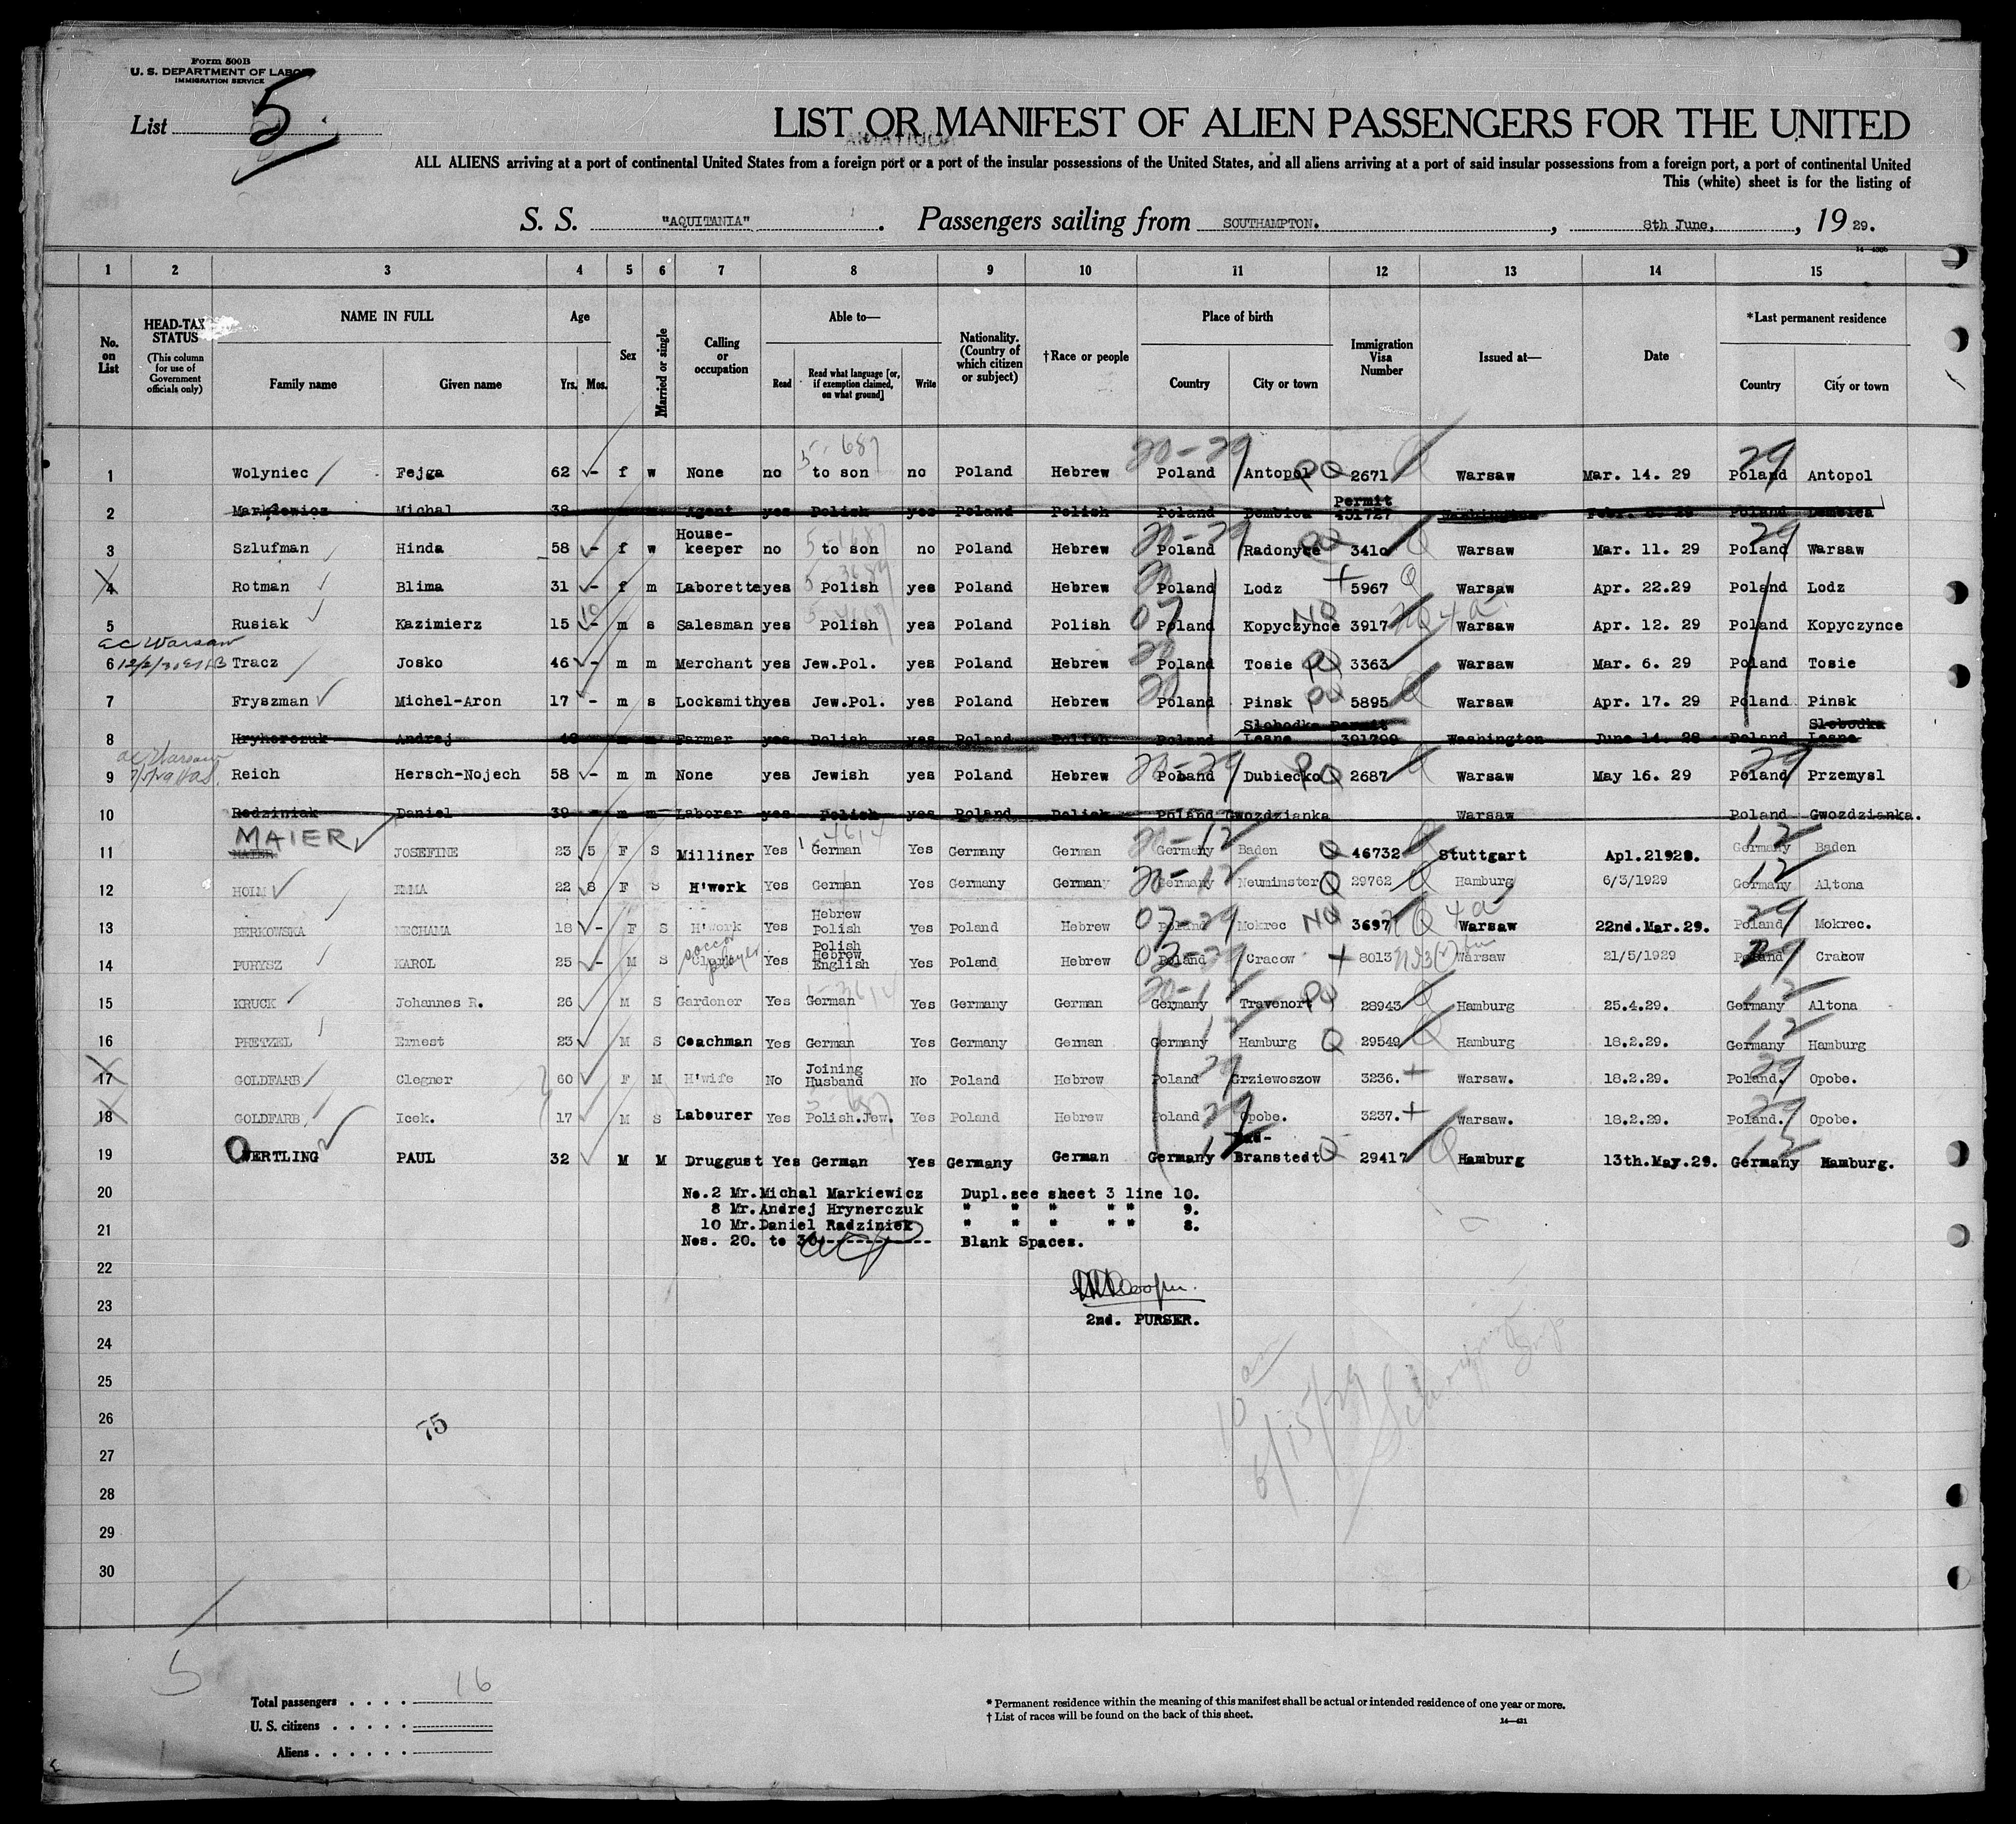 Form 500B
U. S. DEPARTMENT OF LABOR
IMMIGRATION SERVICE
List 5
LIST OR MANIFEST OF ALIEN PASSENGERS FOR THE UNITED
ALL ALIENS arriving at a port of continental United States from a foreign port or a port of the insular possessions of the United States, and all aliens arriving at a port of said insular possessions from a foreign port, a port of continental United
This (white) sheet is for the listing of
S. S. "AQUITANIA" . Passengers sailing from SOUTHAMPTON. , 8th June, , 19 29.
1 2 3 4 5 6 7 8 9 10 11 12 13 14 15
No. on List
HEAD-TAX STATUS
(This column for use of Government officials only)
NAME IN FULL
Family name Given name
Age
Yrs. Mos.
Sex
Married or single
Calling or occupation
Able to—
Read
Read what language [or, if exemption claimed, on what ground]
Write
Nationality. (Country of which citizen or subject)
†Race or people
Place of birth
Country City or town
Immigration Visa Number
Issued at—
Date
*Last permanent residence
Country City or town
1 Wolyniec Fejga 62 - f w None no to son no Poland Hebrew Poland Antopol PQ 2671 Warsaw Mar. 14. 29 Poland Antopol
2 Markiewicz Michal 38 m m Agent yes Polish yes Poland Polish Poland Dembica Permit 431727 Washington Poland Dembica
3 Szlufman Hinda 58 - f w House-keeper no to son no Poland Hebrew Poland 3410 Warsaw Mar. 11. 29 Poland Warsaw
4 Rotman Blima 31 - f m Laborette yes Polish yes Poland Hebrew Poland Lodz 5967 Q Warsaw Apr. 22.29 Poland Lodz
5 Rusiak Kazimierz 15 10 m s Salesman yes Polish yes Poland Polish 07 Poland Kopyczynce NQ 3917 Warsaw Apr. 12. 29 Poland Kopyczynce
6 Tracz Josko 46 - m m Merchant yes Jew.Pol. yes Poland Hebrew Poland Tosie PQ 3363 Warsaw Mar. 6. 29 Poland Tosie
7 Fryszman Michel-Aron 17 - m s Locksmith yes Jew.Pol. yes Poland Hebrew Poland Pinsk PQ 5895 Warsaw Apr. 17. 29 Poland Pinsk
8 Hryhorczuk Andrej 48 m m Farmer yes Polish yes Poland Polish Poland Slobodka Lesne Permit 391799 Washington June 14. 28 Poland Slobodka Lesne
9 Reich Hersch-Nojech 58 - m m None yes Jewish yes Poland Hebrew Poland Dubiecko PQ 2687 Warsaw May 16. 29 Poland Przemysl
10 Radziniak Daniel 39 - m m Laborer yes Polish yes Poland Polish Poland Gwozdzianka Warsaw Poland Gwozdzianka.
MAIER
11 MAIER JOSEFINE 23 5 F S Milliner Yes German Yes Germany German Germany Baden Q 46732 Stuttgart Apl.21928. Germany Baden
12 HOLM EMMA 22 8 F S H'work Yes German Yes Germany German Germany Neumunster Q 29762 Hamburg 6/3/1929 Germany Altona
13 BERKOWSKA NECHAMA 18 - F S H'work Yes Hebrew Polish Yes Poland Hebrew Poland Mokrec NQ 3697 Warsaw 22nd.Mar.29. Poland Mokrec.
14 PURYSZ KAROL 25 - M S Clerk soccer player Yes Polish Hebrew English Yes Poland Hebrew Poland Cracow 8013 Warsaw 21/5/1929 Poland Cracow
15 KRUCK Johannes R. 26 M S Gardener Yes German Yes Germany German Germany Travenort PQ 28943 Hamburg 25.4.29. Germany Altona
16 PRETZEL Ernest 23 M S Coachman Yes German Yes Germany German Germany Hamburg Q 29549 Hamburg 18.2.29. Germany Hamburg
17 GOLDFARB Clegner 60 F M H'wife No Joining Husband No Poland Hebrew Poland Grziewoszow 3236. Warsaw. 18.2.29. Poland. Opobe.
18 GOLDFARB Icek. 17 M S Labourer Yes Polish.Jew. Yes Poland Hebrew Poland Opobe. 3237. Warsaw. 18.2.29. Poland. Opobe.
19 OERTLING PAUL 32 M M Druggust Yes German Yes Germany German Germany Bad-Branstedt Q 29417 Hamburg 13th.May.29. Germany Hamburg.
20 No.2 Mr.Michal Markiewicz Dupl.see sheet 3 line 10.
8 Mr.Andrej Hrynerczuk " " " " " 9.
21 10 Mr.Daniel Radziniek " " " " " 8.
Nos. 20. to 30.----------- Blank Spaces.
22
23
2nd. PURSER.
24
25
26
75
27
28
29
30
10 am
6/15/29
5
Total passengers . . . . 16
U. S. citizens . . . . .
Aliens . . . . . .
* Permanent residence within the meaning of this manifest shall be actual or intended residence of one year or more.
† List of races will be found on the back of this sheet.
14—421